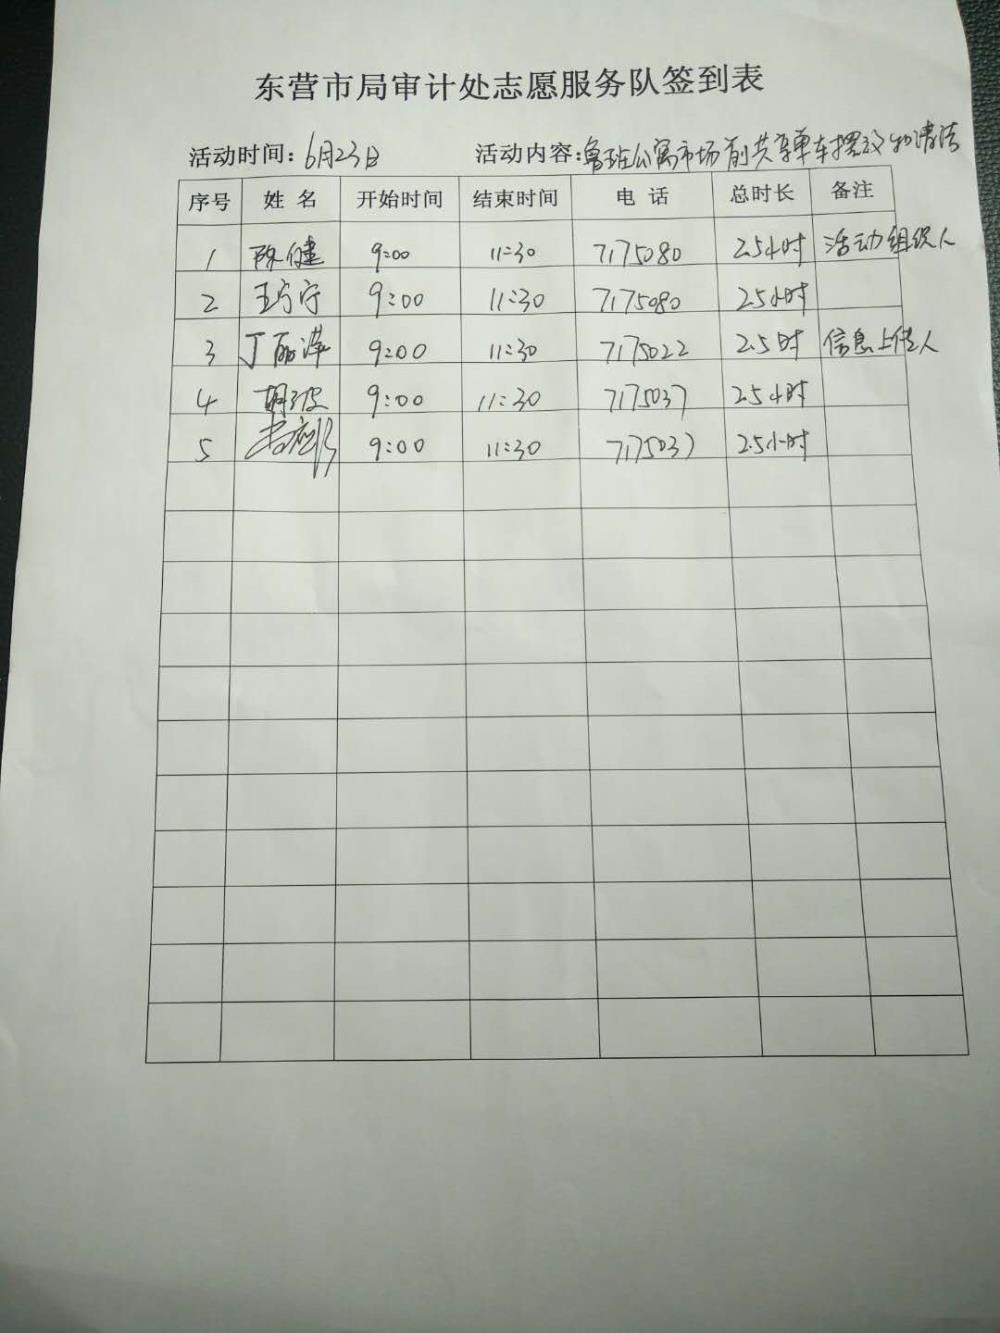 东营市局审计处志愿服务队签到表
活动时间：6月23日 活动内容：鲁班公寓市场前共享单车摆放和清洁
序号 姓名 开始时间 结束时间 电话 总时长 备注
1 陈健 9:00 11:30 7175080 2.5小时 活动组织人
2 王 宁 9:00 11:30 7175080 2.5小时
3 丁丽萍 9:00 11:30 7175022 2.5时 信息上传人
4 胡波 9:00 11:30 7175037 2.5小时
5 9:00 11:30 7175037 2.5小时